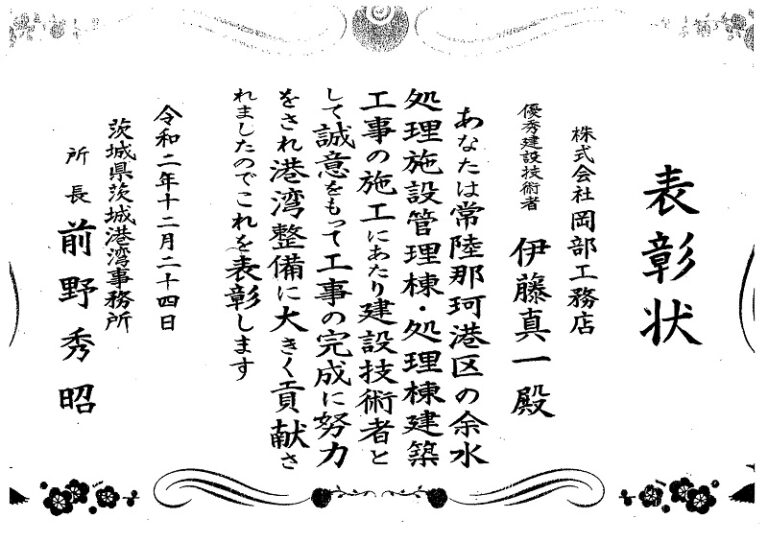 表彰状
株式会社岡部工務店
優秀建設技術者 伊藤真一殿
あなたは常陸那珂港区の余水
処理施設管理棟・処理棟建築
工事の施工にあたり建設技術者と
して誠意をもって工事の完成に努力
をされ港湾整備に大きく貢献さ
れましたのでこれを表彰します
令和二年十二月二十四日
茨城県茨城港湾事務所
所長 前野秀昭